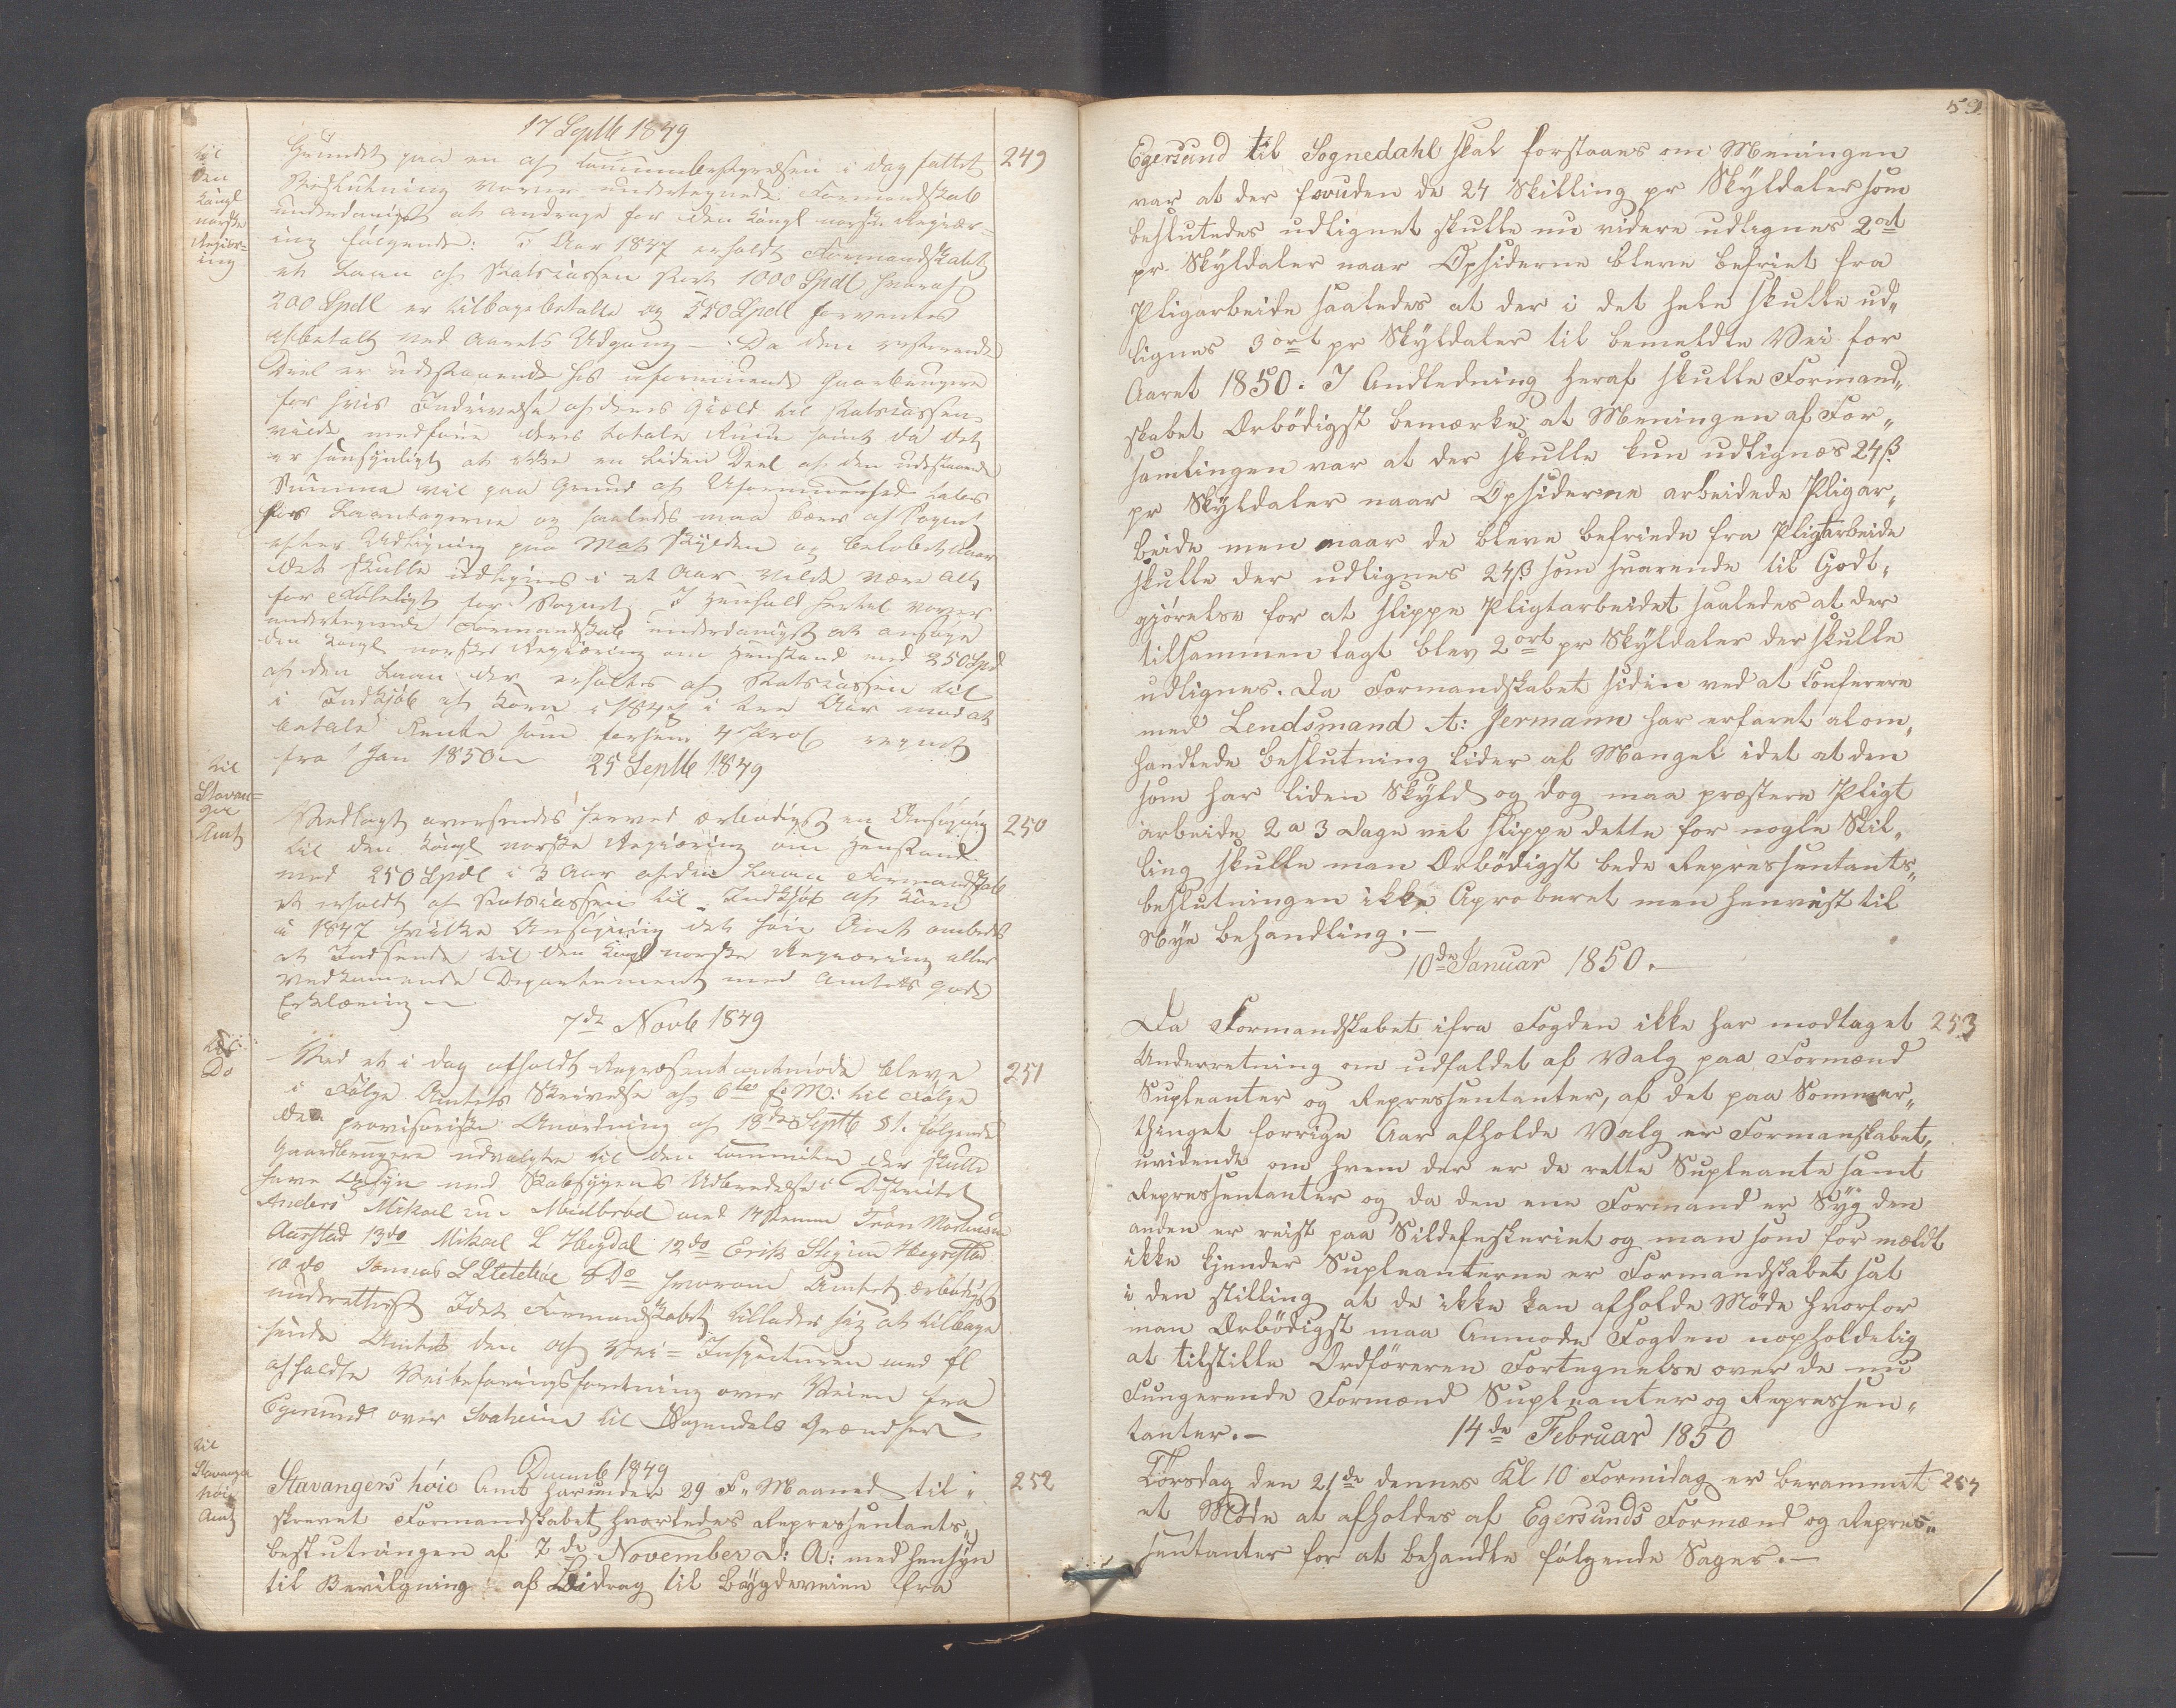 17 Septb 1849
til
den
kongl
norske
Regier=
ing
249
Grundet paa en af Communbestyrelsen i dag fattet
Beslutning vover undertegnede Formandskab
underdanigst at andrage for den kongl norske Regiær=
ing følgende: I Aar 1847 erholdt Formandskabet
et Laan af Statscassen stort 1000 Spdl hvoraf
200 Spdl er tilbagebetalte og 550 Spdl forventes
afbetalt ved Aarets Udgang –. Da den resterende
Deel er udestaaende hos uformuende Gaardbrugere
for hvis Inddrivelse af deres Gjæld til Statscassen
vilde medføre deres totale Ruin samt da det
er sansynligt at ikke en liden Deel af den udestaaende
Summa vil paa Grund af Uformuenhed tabes
hos Laantagerne og saaledes maa bæres af Sognet
efter Udligning paa Mat Skylden og Beløbet naar
det skulle udlignes i et Aar vilde være alt
for føleligt for Sognet. I Henhold hertil vover
undertegnede Formandskab underdanigst at ansøge
den kongl norske Regiæring om Henstand med 250 Spd
af den Laan der erholdtes af Statscassen til
i Indkjøb af Korn i 1847 i tre Aar mod at
betale Rente som forhen 4 Proc regnet
fra 1 Jan 1850 –
25 Septb 1849
til
Stavan=
ger
Amt
250
Vedlagt oversendes herved ærbødigst en Ansøgning
til den kongl norske Regiæring om Henstand
med 250 Spdl i 3 Aar af den Laan Formandskab
et erholdt af Statscassen til Indkjøb af Korn
i 1847 hvilke Ansøgning det høie Amt ombedes
at Indsende til den kongl norske Regiæring eller
vedkommende Departement med Amtets gode
Erklæring –
7de Novb 1849
til
Do
251
Ved et i dag afholdt Repræsentantmøde bleve
i Følge Amtets Skrivelse af 6te f: M: til Følge
den provisoriske Anordning af 18de Septb d. A. følgende
Gaardbrugere udvalgte til den Committee der skulle
have Opsyn med Skabsygens Udbredelse i Distrietet
Anders Mikael Midbrød med 14 stemmer Tron Mortensen
Aarstad 13do Mikael L Hegdal 12do Erik Hegrestad
10 do Tomas L Sletebøe 8 Do hvorom Amtet ærbødigst
underettes Idet Formandskabet tillader sig at tilbage
sende Amtet den af Vei=Inspecteuren med fl
afholdte Veibefaringsforretning over Veien fra
Egersund over Svaheim til Sogendals Grændser.
Decemb 1849
til
Stavanger
høie
Amt
252
Stavangers høie Amt har under 29 F. Maaned til„
skrevet Formandskabet hvorledes Repressentants„
beslutningen af 7de November d: A: med Hensyn
til Bevilgning af Bidrag til Bøygdeveien fra
59
Egersund til Sognedahl skal forstaaes om Meningen
var at der foruden de 24 Skilling pr Skÿldaler som
beslutedes udlignet skulle nu videre udlignes 2 ort
pr. Skÿldaler naar Opsiderne bleve befriet fra
Pligarbeide saaledes at der i det hele skulle ud„
lignes 3 ort pr Skÿldaler til bemeldte Vei for
Aaret 1850. I Andledning heraf skulle Formand„
skabet Ærbödigst bemærke at Meningen af For„
samlingen var at der skulle kun udlignes 24 ß
pr Skÿldaler naar Opsiderne arbeidede Pligar„
beide men naar de bleve befriede fra Pligtarbeide
skulle der udlignes 24 ß som svarende til Godt„
gjørelse for at slippe Pligtarbeidet saaledes at der
tilsammen lagt blev 2 ort pr Skÿldaler der skulle
udlignes. Da Formandskabet siden ved at Conferere
med Lendsmand A: Jermann har erfaret at om„
handlede beslutning lider af Mangel idet at den
som har liden Skÿld og dog maa præstere Pligt
arbeide 2 a 3 Dage vel slippe dette for nogle Skil„
ling skulle man Ærbödigst bede Repressentants„
beslutningen ikke Aproberet men henvist til
Nye behandling. –
10de Januar 1850. –
253
Da Formandskabet ifra Fogden ikke har modtaget
Underretning om udfaldet af Valg paa Formænd
Supleanter og Repressentanter, af det paa Sommer„
thinget forrige Aar afholde Valg er Formanskabet,
uvidende om hvem der er de rette Supleante samt
Repressentanter og da den ene Formand er Sÿg den
anden er reist paa Sildefiskeriet og man som for meldt
ikke kjender Supleanterne er Formandskabet sat
i den stilling at de ikke kan afholde Møde hvorfor
man Ærbödigst maa Anmode Fogden uopholdelig
at tilstille Ordføreren Fortegnelse over de nu
Fungerende Formænd Supleanter og Repressen„
tanter. –
14de Februar 1850
254
Torsdag den 21de dennes Kl 10 Formidag er berammet
et Møde at afholdes af Egersunds Formænd og Repres„
sentanter for at behandle følgende Sager. –